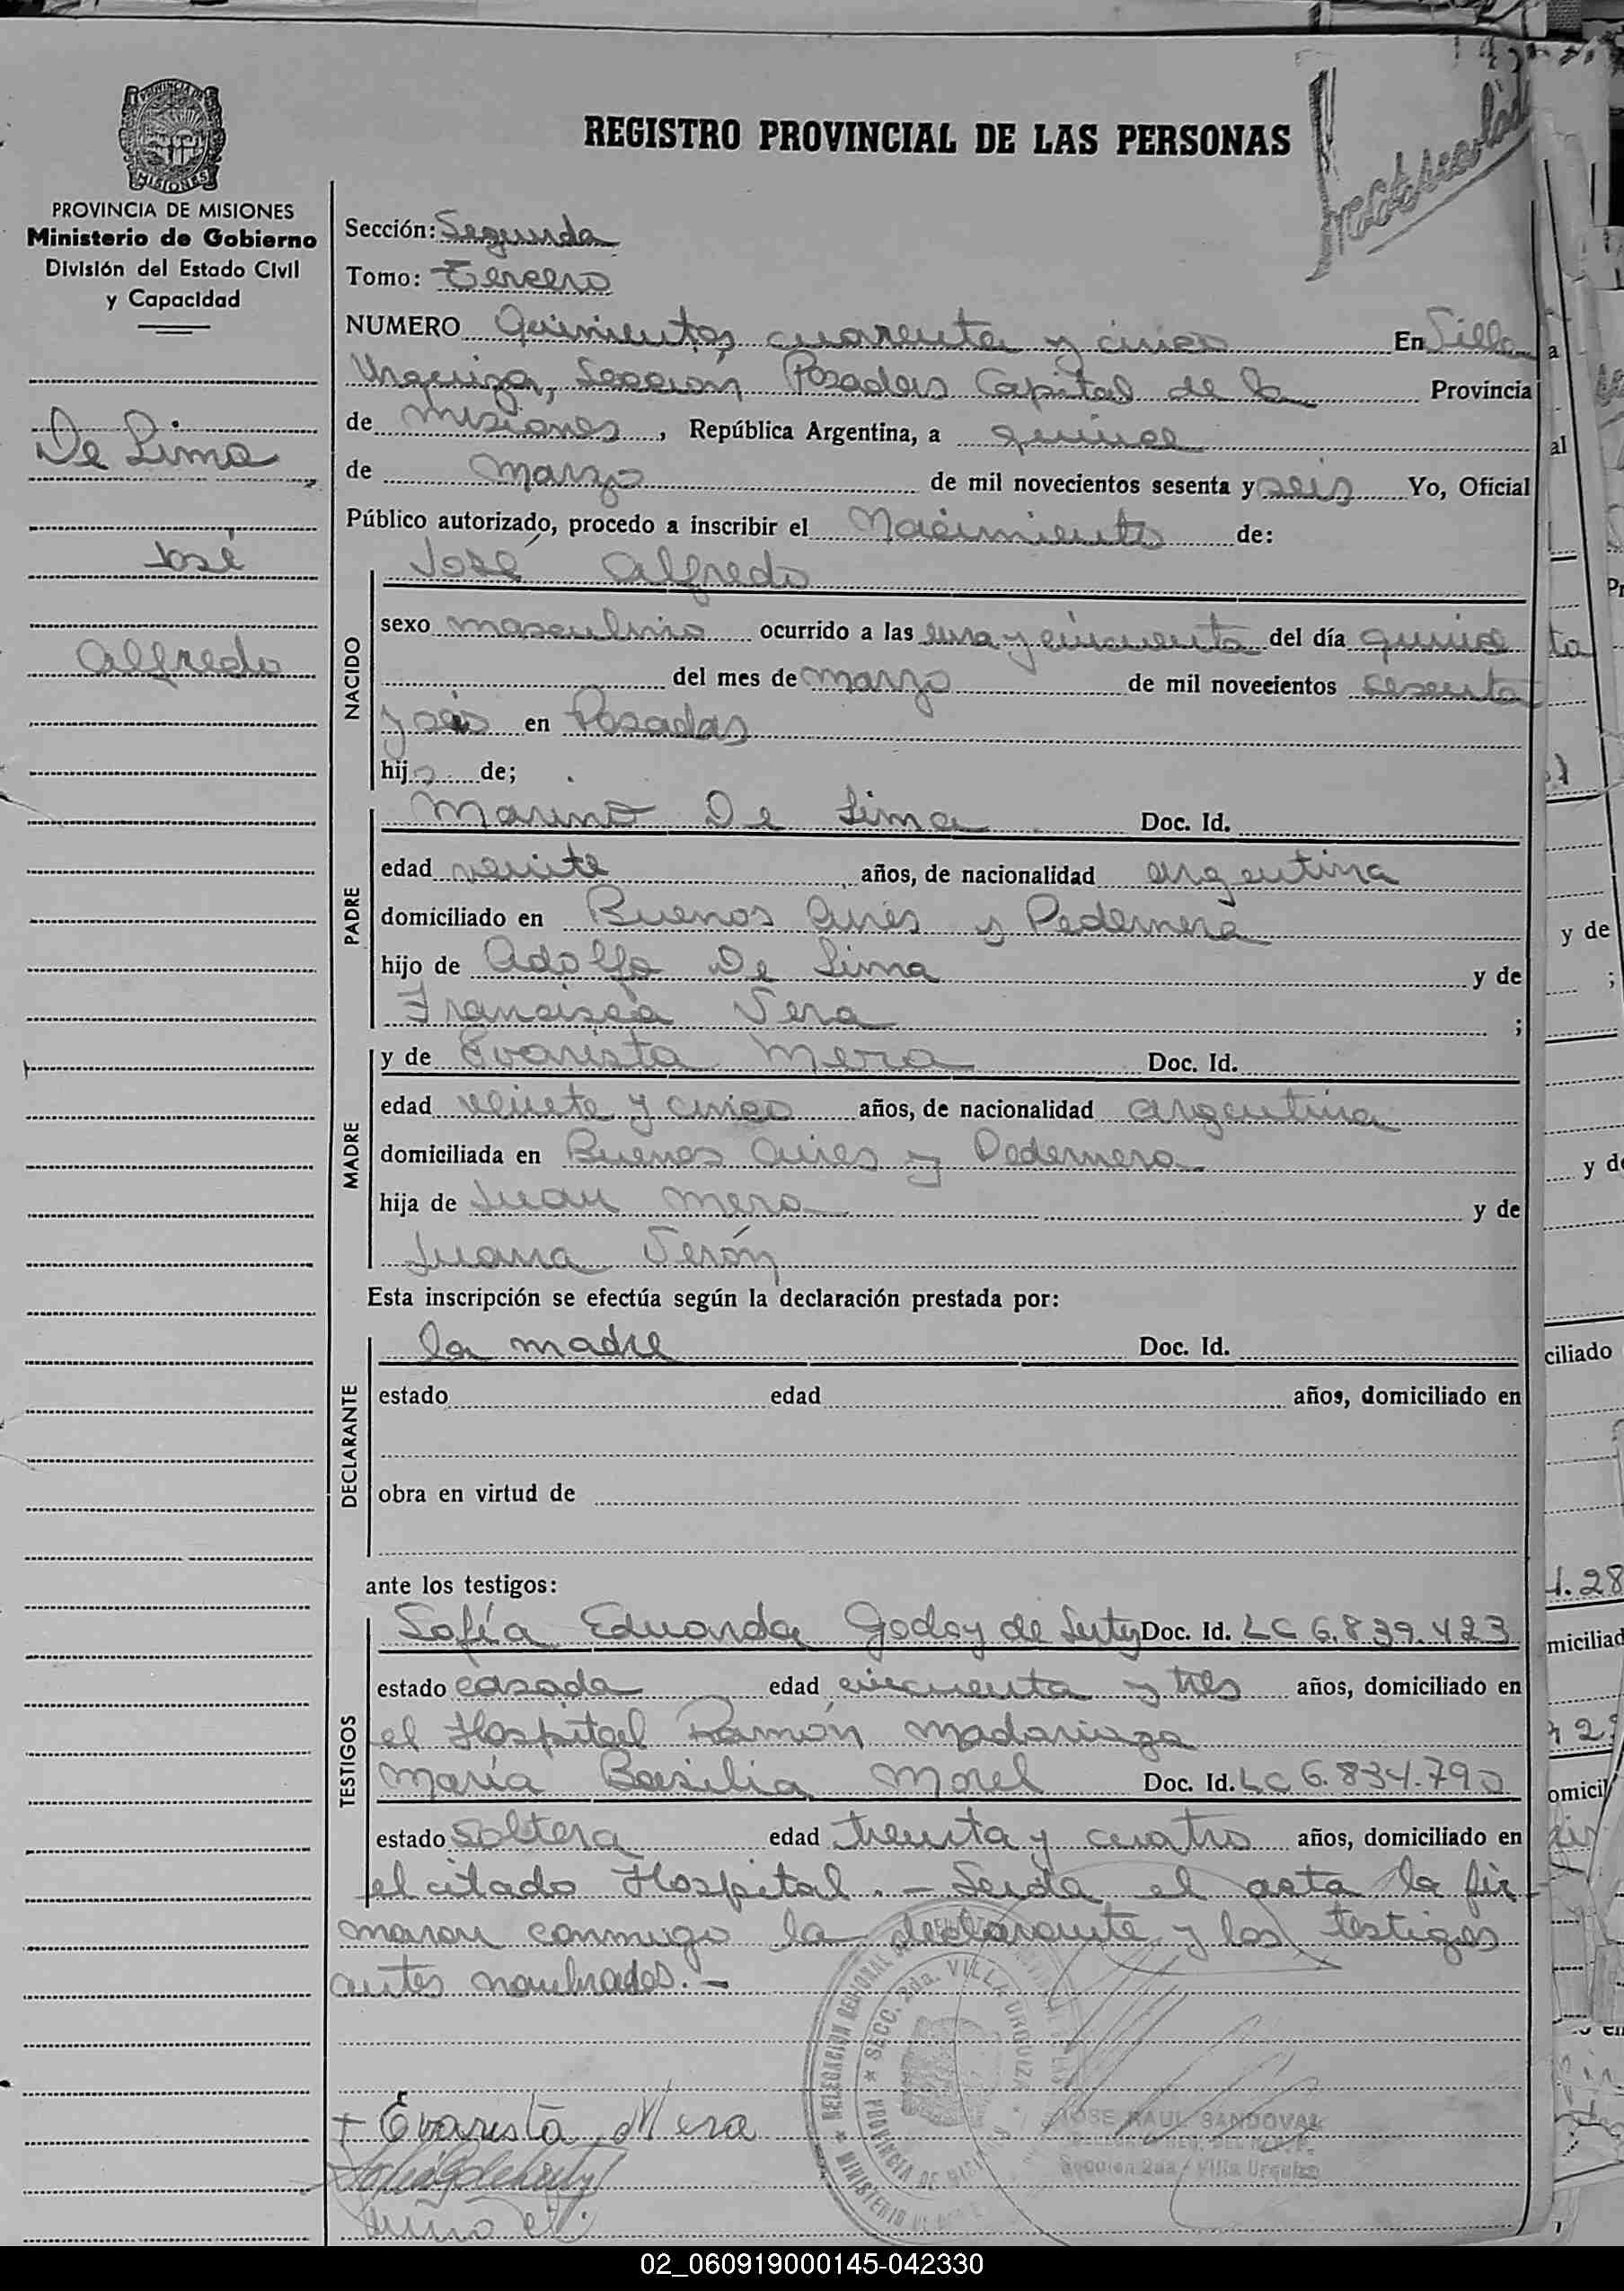 REGISTRO PROVINCIAL DE LAS PERSONAS
PROVINCIA DE MISIONES
Ministerio de Gobierno
División del Estado Civil
y Capacidad
De Lima
José
Alfredo
Sección: Segunda
Tomo: Tercero
NUMERO Quinientos cuarenta y cinco En Villa
Urquiza, Sección Posadas Capital de la Provincia
de Misiones, República Argentina, a quince
de marzo de mil novecientos sesenta y seis Yo, Oficial
Público autorizado, procedo a inscribir el Nacimiento de:
José Alfredo
NACIDO
sexo masculino ocurrido a las una y cincuenta del día quince
del mes de marzo de mil novecientos sesenta
y seis en Posadas
hijo de;
PADRE
Marino De Lima Doc. Id.
edad veinte años, de nacionalidad argentina
domiciliado en Buenos Aires y Pedernera
hijo de Adolfo De Lima y de
Francisca Vera ;
MADRE
y de Evarista Mera Doc. Id.
edad veinte y cinco años, de nacionalidad argentina
domiciliada en Buenos Aires y Pedernera
hija de Juan Mera y de
Juana Verón
Esta inscripción se efectúa según la declaración prestada por:
DECLARANTE
la madre Doc. Id.
estado edad años, domiciliado en
obra en virtud de
ante los testigos:
TESTIGOS
Sofía Eduarda Godoy de Doc. Id. LC 6.839.423
estado casada edad cincuenta y tres años, domiciliado en
el Hospital Ramón Madariaga
María Basilia Morel Doc. Id. LC 6.834.790
estado soltera edad treinta y cuatro años, domiciliado en
el citado Hospital. - Leída el acta la fir
maron conmigo la declarante y los testigos
antes nombrados. -
SECC. 2da. VILLA URQUIZA
PROVINCIA DE MISIONES
DELEGACION REGIONAL
MINISTERIO DE
+ Evarista Mera
JOSE RAUL SANDOVAL
Sección 2da. Villa Urquiza
02_060919000145-042330